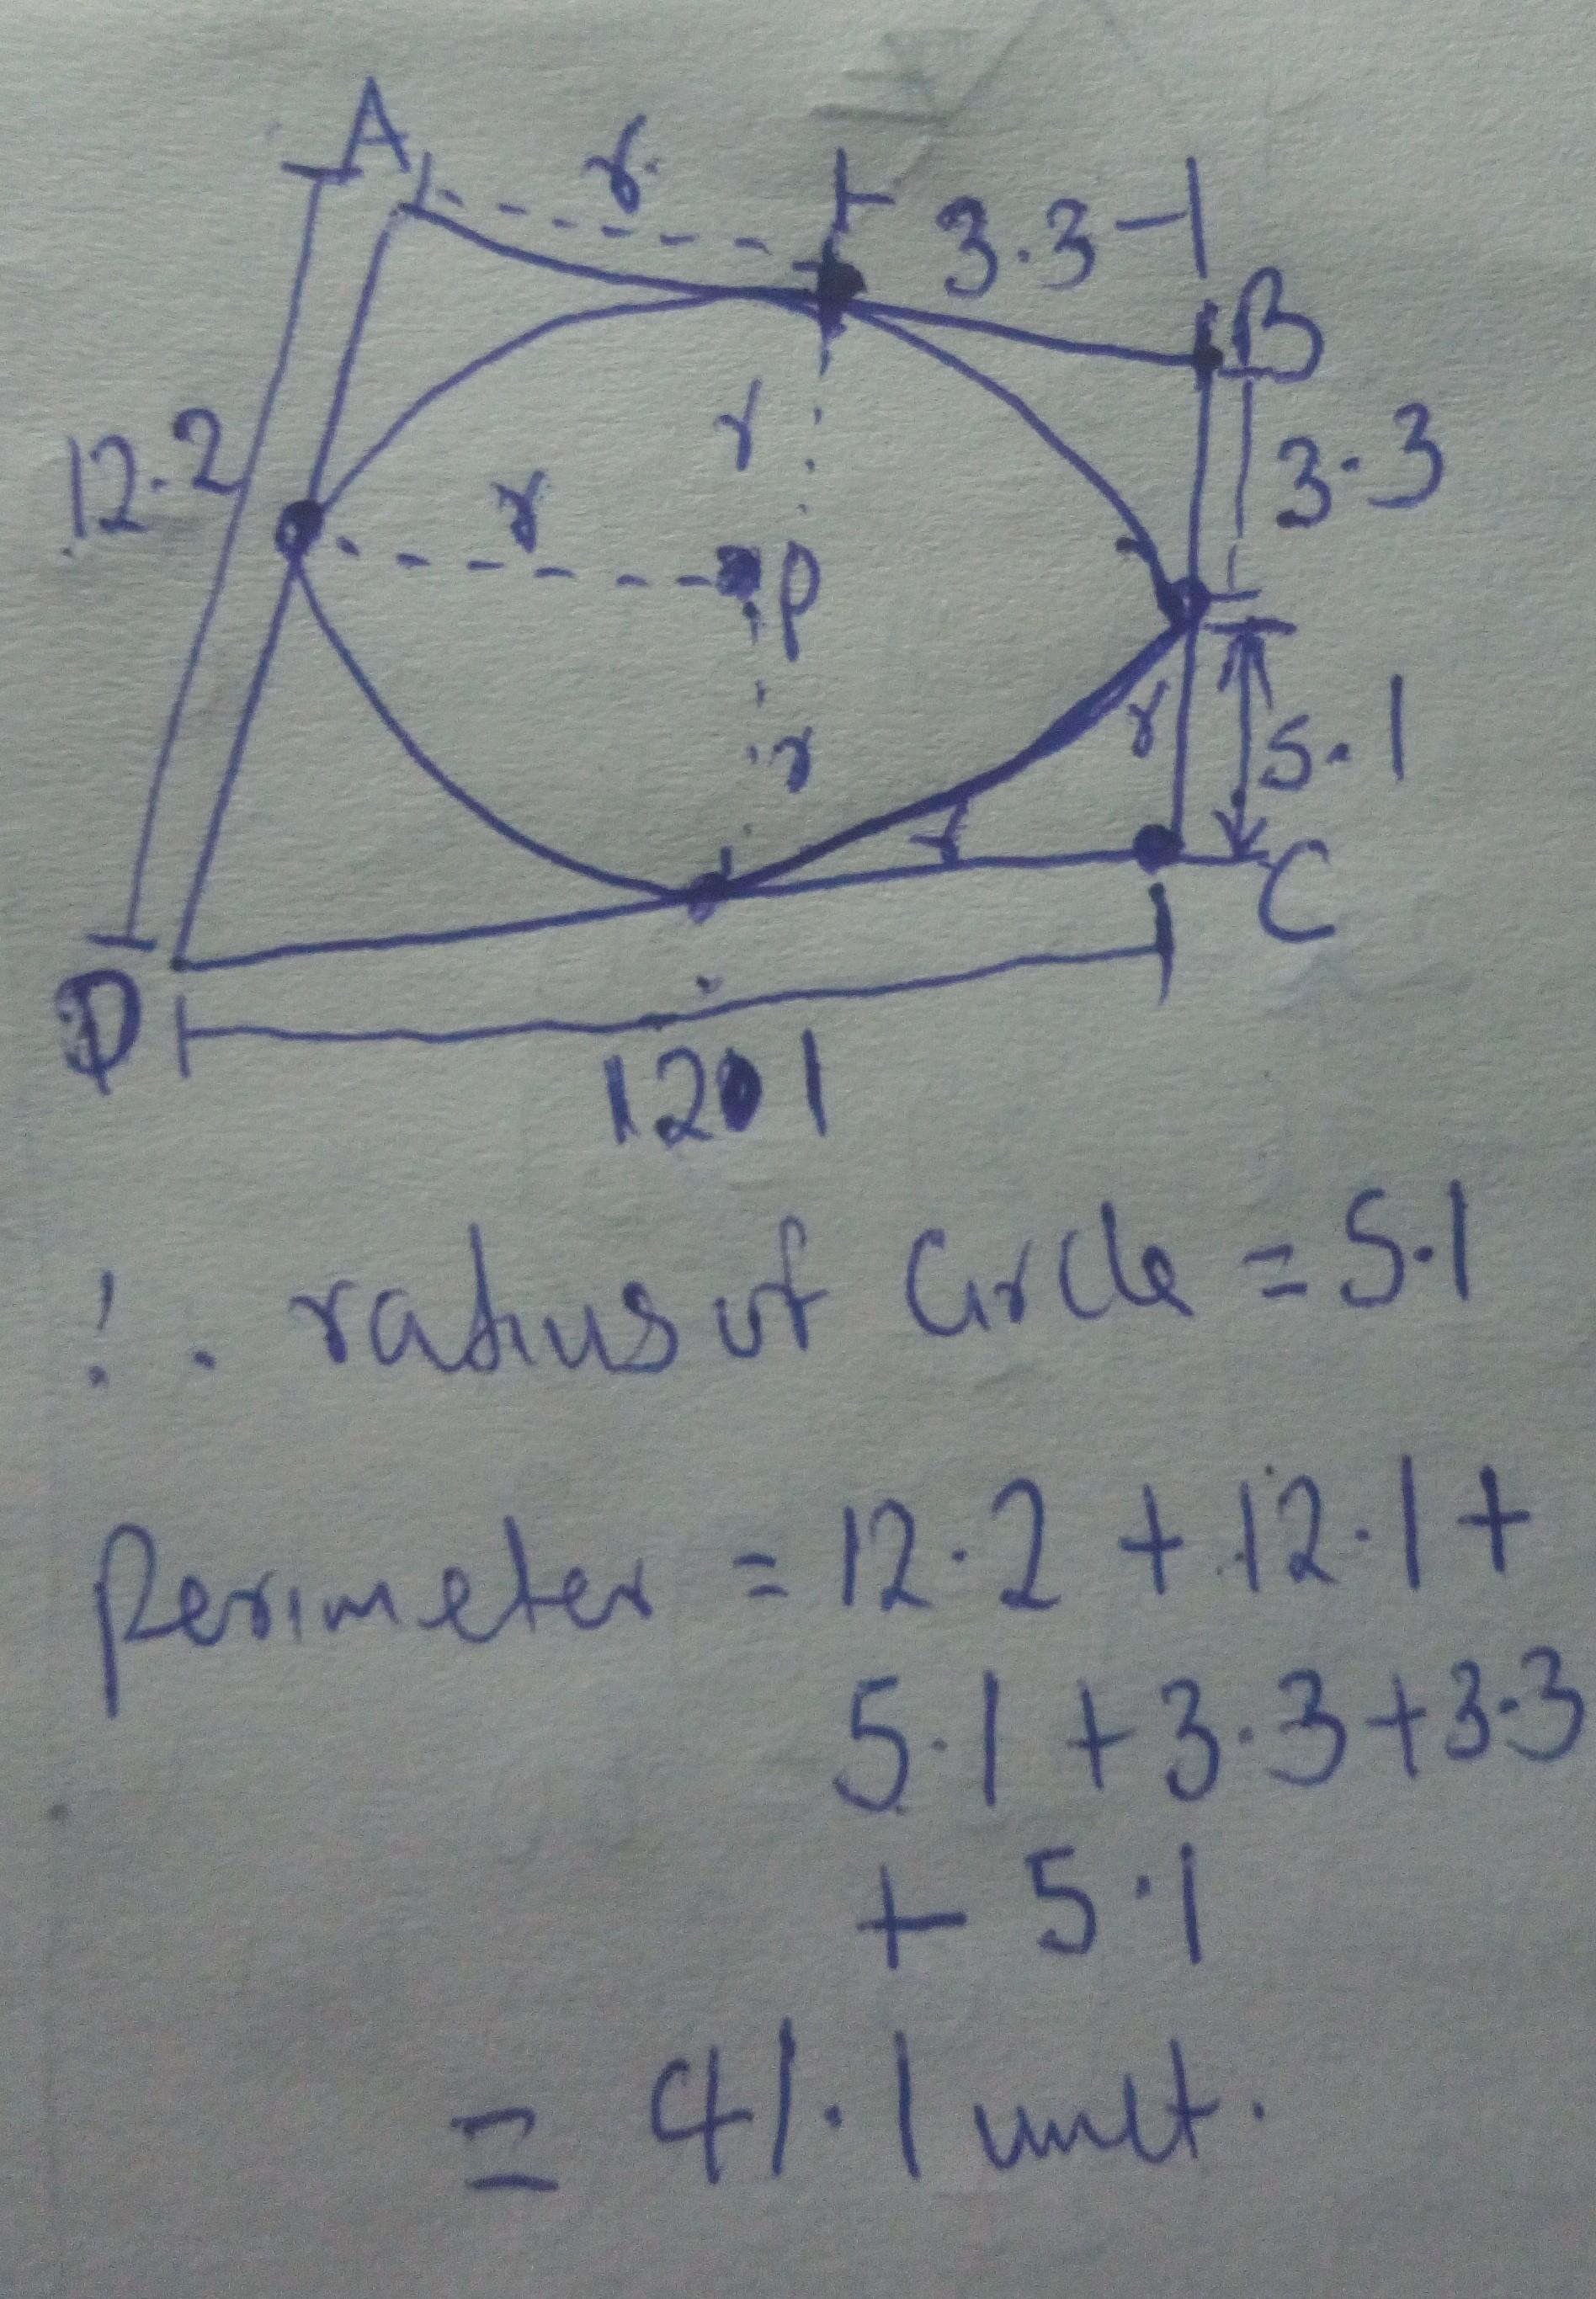 A
r
3.3
B
12.2
r
r
3.3
P
r
r
5.1
r
C
D
12.1
∴ radius of Circle = 5.1
Perimeter = 12.2 + 12.1 +
5.1 + 3.3 + 3.3
+ 5.1
= 41.1 unit.